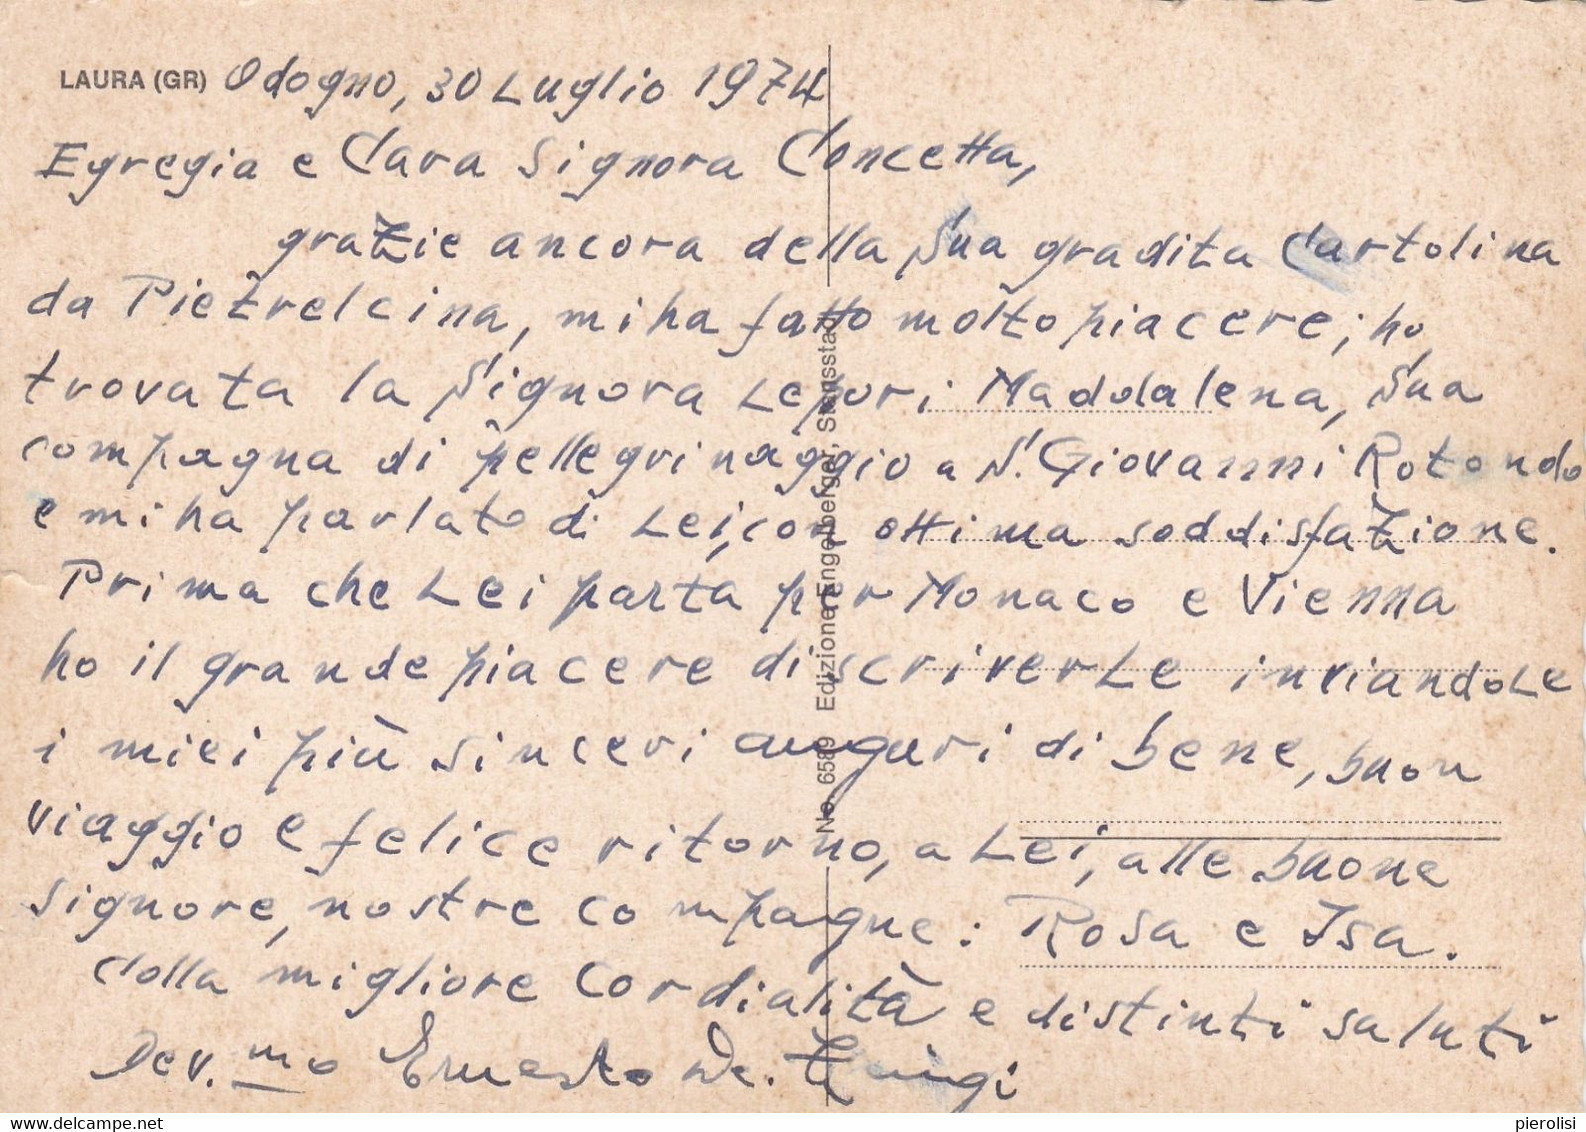 LAURA (GR) Odogno, 30 Luglio 1974
Egregia e Cara Signora Concetta,
grazie ancora della Sua gradita Cartolina
da Pietrelcina, mi ha fatto molto piacere; ho
trovata la Signora Lepori Maddalena, Sua
compagna di pellegrinaggio a S. Giovanni Rotondo
e mi ha parlato di Lei, con ottima soddisfazione.
Prima che Lei parta per Monaco e Vienna
ho il grande piacere di scriverLe inviandoLe
i miei più sinceri auguri di bene, buon
viaggio e felice ritorno, a Lei, alle buone
signore, nostre compagne: Rosa e Isa.
Colla migliore Cordialità e distinti saluti
Dev.mo Ernesto De.
No. 6589 Edizione Engelberger, Stansstad
pierolisi